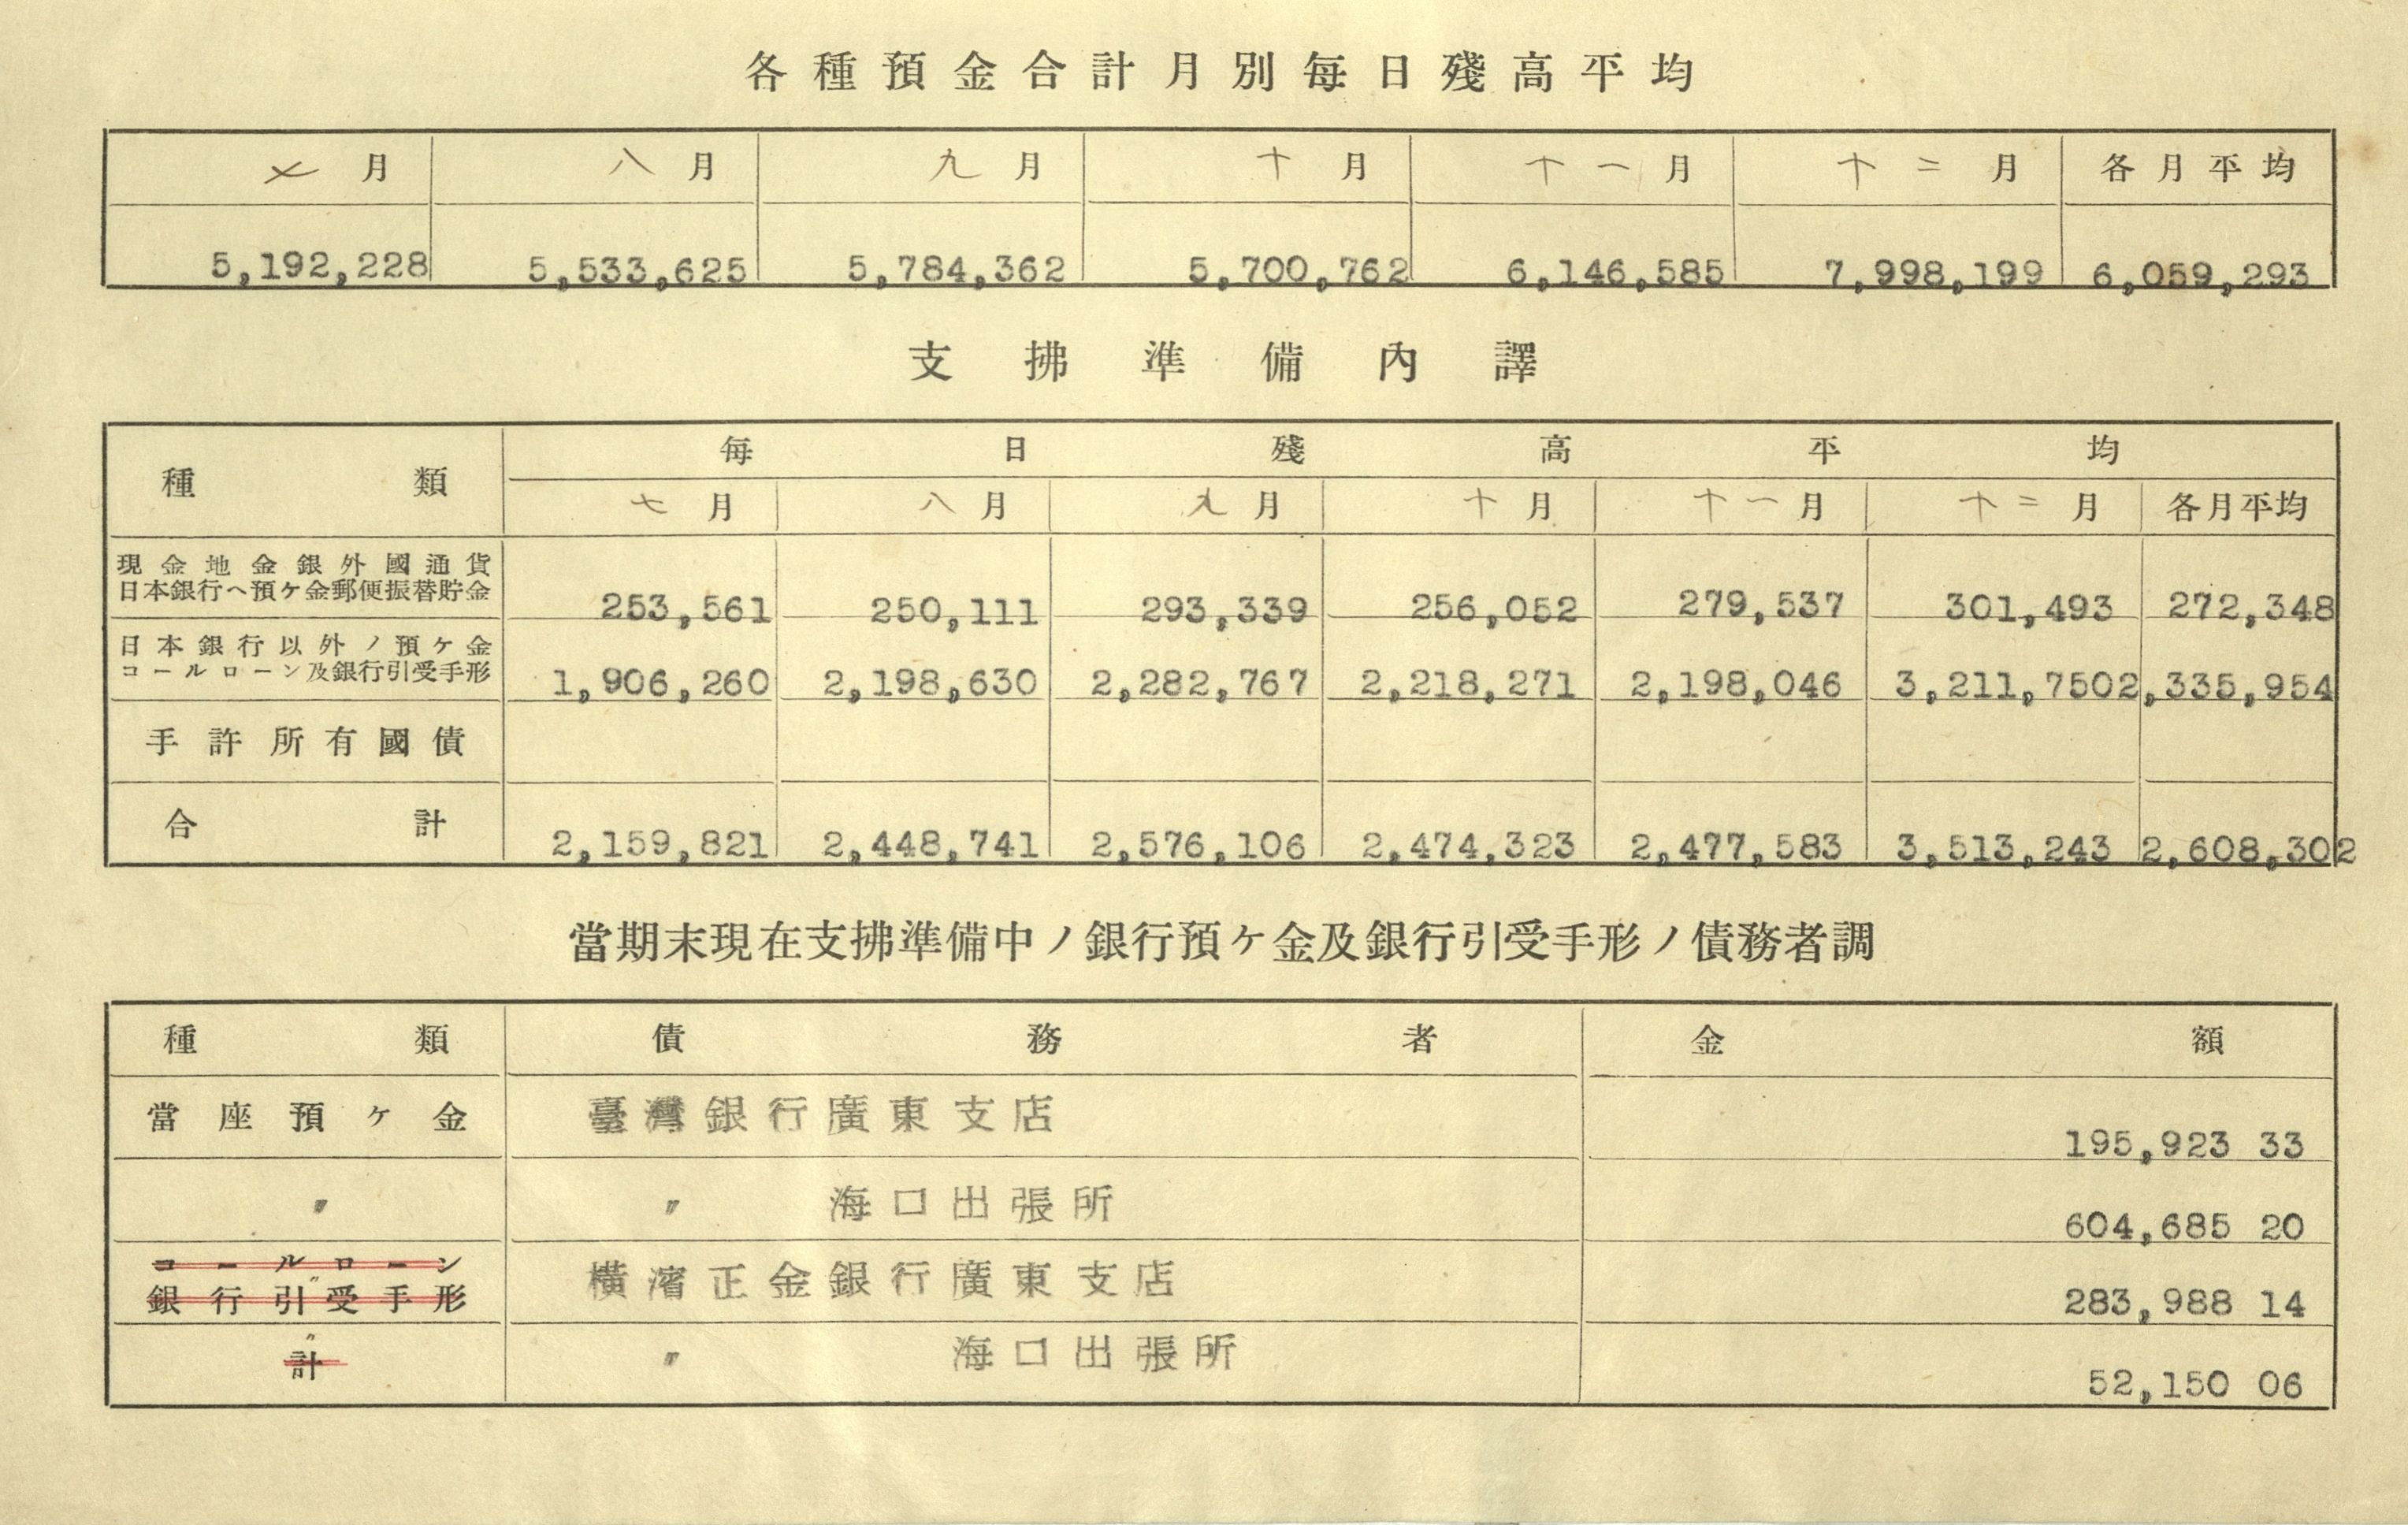 各種預金合計月別每日殘高平均
七月 八月 九月 十月 十一月 十二月 各月平均
5,192,228 5,533,625 5,784,362 5,700,762 6,146,585 7,998,199 6,059,293
支拂準備內譯
種類 每日殘高平均
七月 八月 九月 十月 十一月 十二月 各月平均
現金地金銀外國通貨
日本銀行ヘ預ケ金郵便振替貯金 253,561 250,111 293,339 256,052 279,537 301,493 272,348
日本銀行以外ノ預ケ金
コールローン及銀行引受手形 1,906,260 2,198,630 2,282,767 2,218,271 2,198,046 3,211,750 2,335,954
手許所有國債
合計 2,159,821 2,448,741 2,576,106 2,474,323 2,477,583 3,513,243 2,608,302
當期末現在支拂準備中ノ銀行預ケ金及銀行引受手形ノ債務者調
種類 債務者 金額
當座預ケ金 臺灣銀行廣東支店 195,923 33
〃 〃 海口出張所 604,685 20
コールローン
〃
銀行引受手形 橫濱正金銀行廣東支店 283,988 14
〃
計 〃 海口出張所 52,150 06